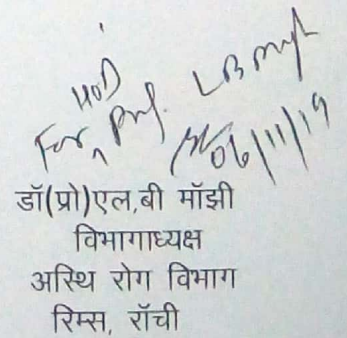 HOD
For, Prof. LB
06/11/19
डॉ(प्रो)एल,बी मॉझी
विभागाध्यक्ष
अस्थि रोग विभाग
रिम्स, रॉची